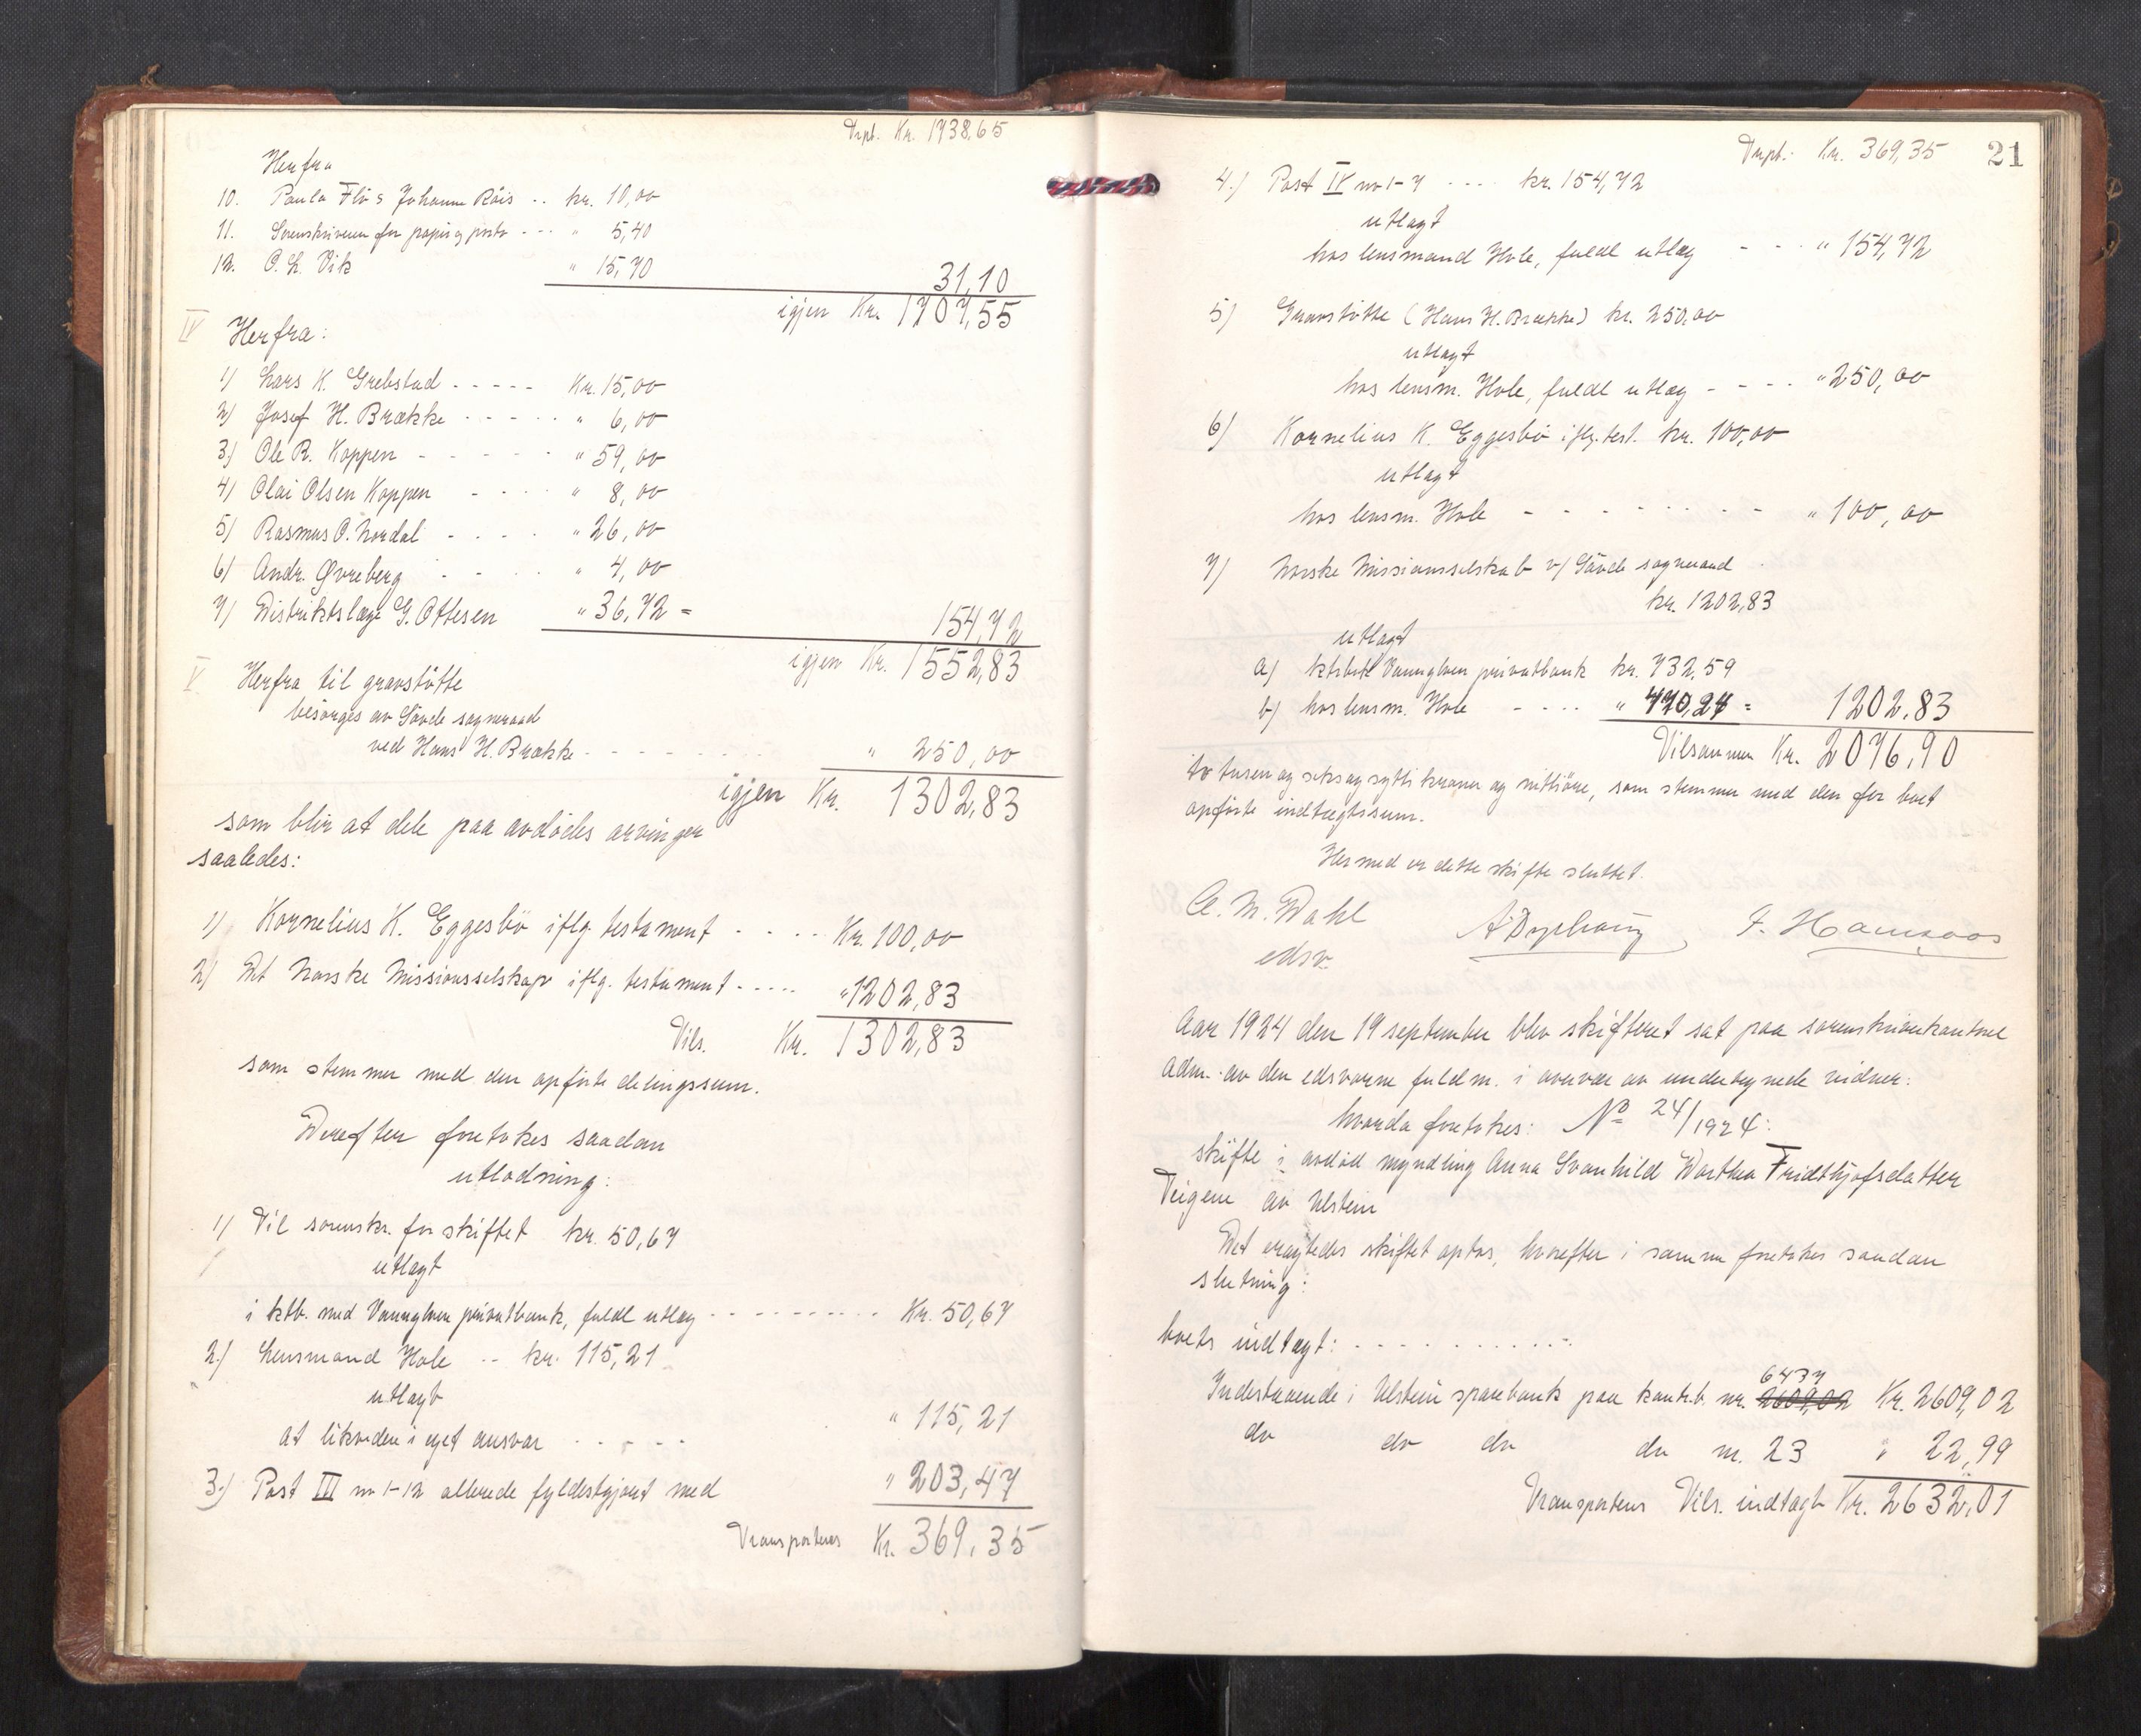 Trpt. Kr. 1738,65
Herfra
10. Paula Flö & Johanne Röis .. kr. 10,00
11. Sorenskriveren for papir og porto - - - " 5,40
12. O. L. Vik " 15,70 31,10
igjen Kr. 1707,55
IV Herfra:
1) Lars K. Grebstad - - - - - Kr. 15,00
2) Josef H. Brække - - - - - " 6,00
3) Ole R. Koppen - - - - - " 59,00
4) Olai Olsen Koppen - - - - " 8,00
5) Rasmus O. Nordal - - - - " 26,00
6) Andr. Øvreberg - - - " 4,00
7) Distriktslæge G. Ottesen " 36,72 = 154,72
igjen Kr. 1552,83
V. Herfra til gravstötte
besörges av Sövde sogneraad
ved Hans H. Brække - - - - - - - " 250,00
igjen Kr. 1302,83
som blir at dele paa avdödes arvinger
saaledes:
1) Kornelius K. Eggesbö iflg. testament - - - - Kr. 100,00
2) Det Norske Missionsselskap iflg. testament - - - - - " 1202,83
Tils. Kr. 1302,83
som stemmer med den opförte delingssum.
Derefter foretokes saadan
utlodning:
1) Til sorenskr. for skiftet kr. 50,67
utlagt
i ktb. med Vannylven privatbank, fuldt utlæg - - - - - - - - - Kr. 50,67
2.) Lensmand Hole .. kr. 115,21
utlagt
at likvidere i eget ansvar - - - - - " 115,21
3.) Post III nr 1-12 allerede fyldestgjort med " 203,47
Transporteres Kr. 369,35
Trpt. Kr. 369,35 21
4.) Post IV nr 1-7 - - - kr. 154,72
utlagt
hos lensmand Hole, fuldt utlæg - - - " 154,72
5) Gravstötte (Hans H. Brække) kr. 250,00
utlagt
hos lensm. Hole, fuldt utlæg - - - - " 250,00
6) Kornelius K. Eggesbö iflg. test. kr. 100,00
utlagt
hos lensm. Hole - - - - - - - - " 100,00
7) Norske Missionsselskab v/ Sövde sogneraad
kr. 1202,83
utlagt
a) ktrbok Vannylven privatbank kr. 732,59
b) hos lensm. Hole - - - - " 470,24 = 1202,83
Tilsammen Kr. 2076,90
to tusen og seksogsytti kroner og nittiöre, som stemmer med den for boet
opförte indtægtssum.
Hermed er dette skifte sluttet.
A. M. Dahl
edsv.
Aar 1924 den 19 september blev skifteret sat paa sorenskriverkontoret
adm. av den edsvorne fuldm. i overvær av undertegnede vidner:
hvorda foretokes: No 24/1924:
skifte i avdöd myndling Anna Svanhild Dorthea Fridthjofsdatter
Teigene av Ulstein
Det eragtedes skiftet optat, hvorefter i samme foretokes saadan
slutning:
boets indtægt: - - - - - - - - - - -
Indestaaende i Ulstein sparebank paa kontrb. nr. 2609,02 6437 Kr. 2609,02
do do do do nr. 23 " 22,99
Transporteres Tils. indtægt Kr. 2632,01